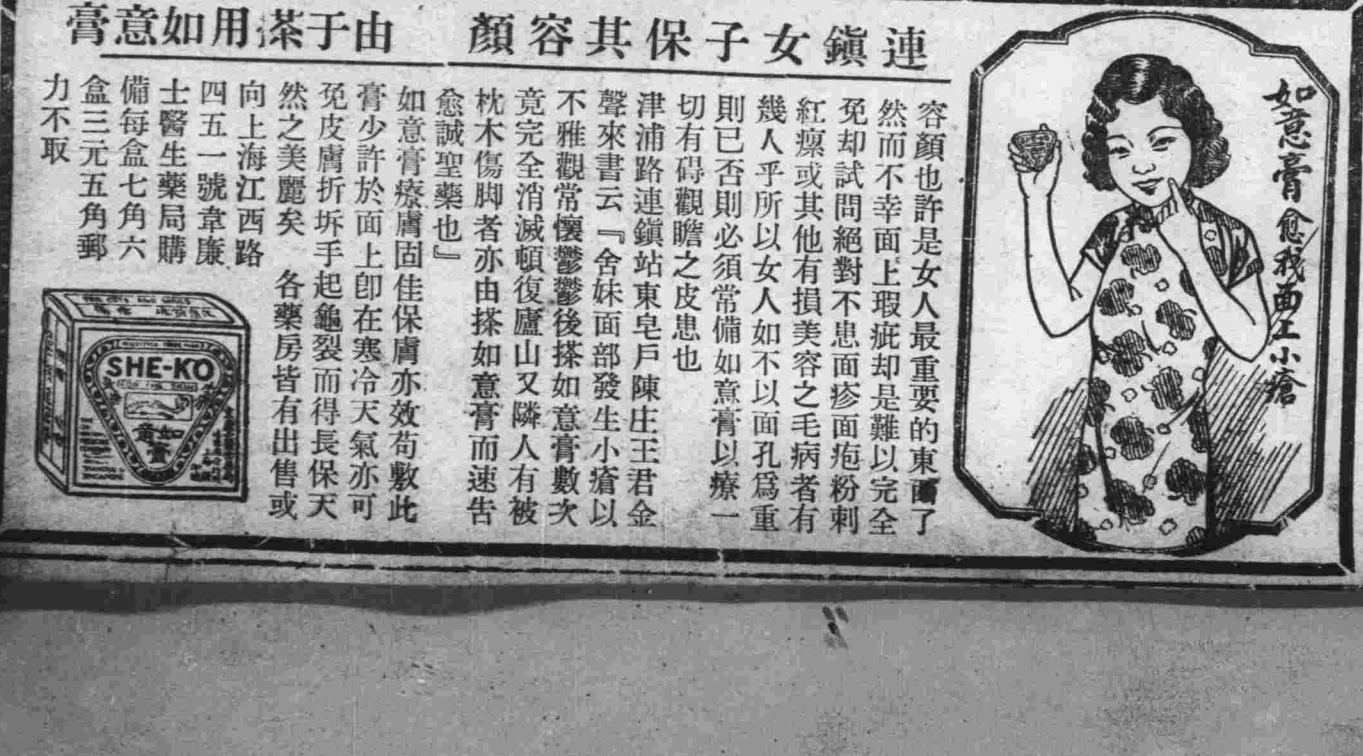 連鎮女子保其容顏 由于搽用如意膏
如意膏愈我面上小瘡
容顏也許是女人最重要的東西了
然而不幸面上瑕疵却是難以完全
免却試問絕對不患面疹面疱粉刺
紅瘰或其他有損美容之毛病者有
幾人乎所以女人如不以面孔爲重
則已否則必須常備如意膏以療一
切有碍觀瞻之皮患也
津浦路連鎮站東皂戶陳庄王君金
聲來書云『舍妹面部發生小瘡以
不雅觀常懷鬱鬱後搽如意膏數次
竟完全消滅頓復廬山又隣人有被
枕木傷脚者亦由搽如意膏而速告
愈誠聖藥也』
如意膏療膚固佳保膚亦效苟敷此
膏少許於面上卽在寒冷天氣亦可
免皮膚折坼手起龜裂而得長保天
然之美麗矣 各藥房皆有出售或
向上海江西路
四五一號韋廉
士醫生藥局購
備每盒七角六
盒三元五角郵
力不取
SHE-KO
FOR THE SKIN
如意膏